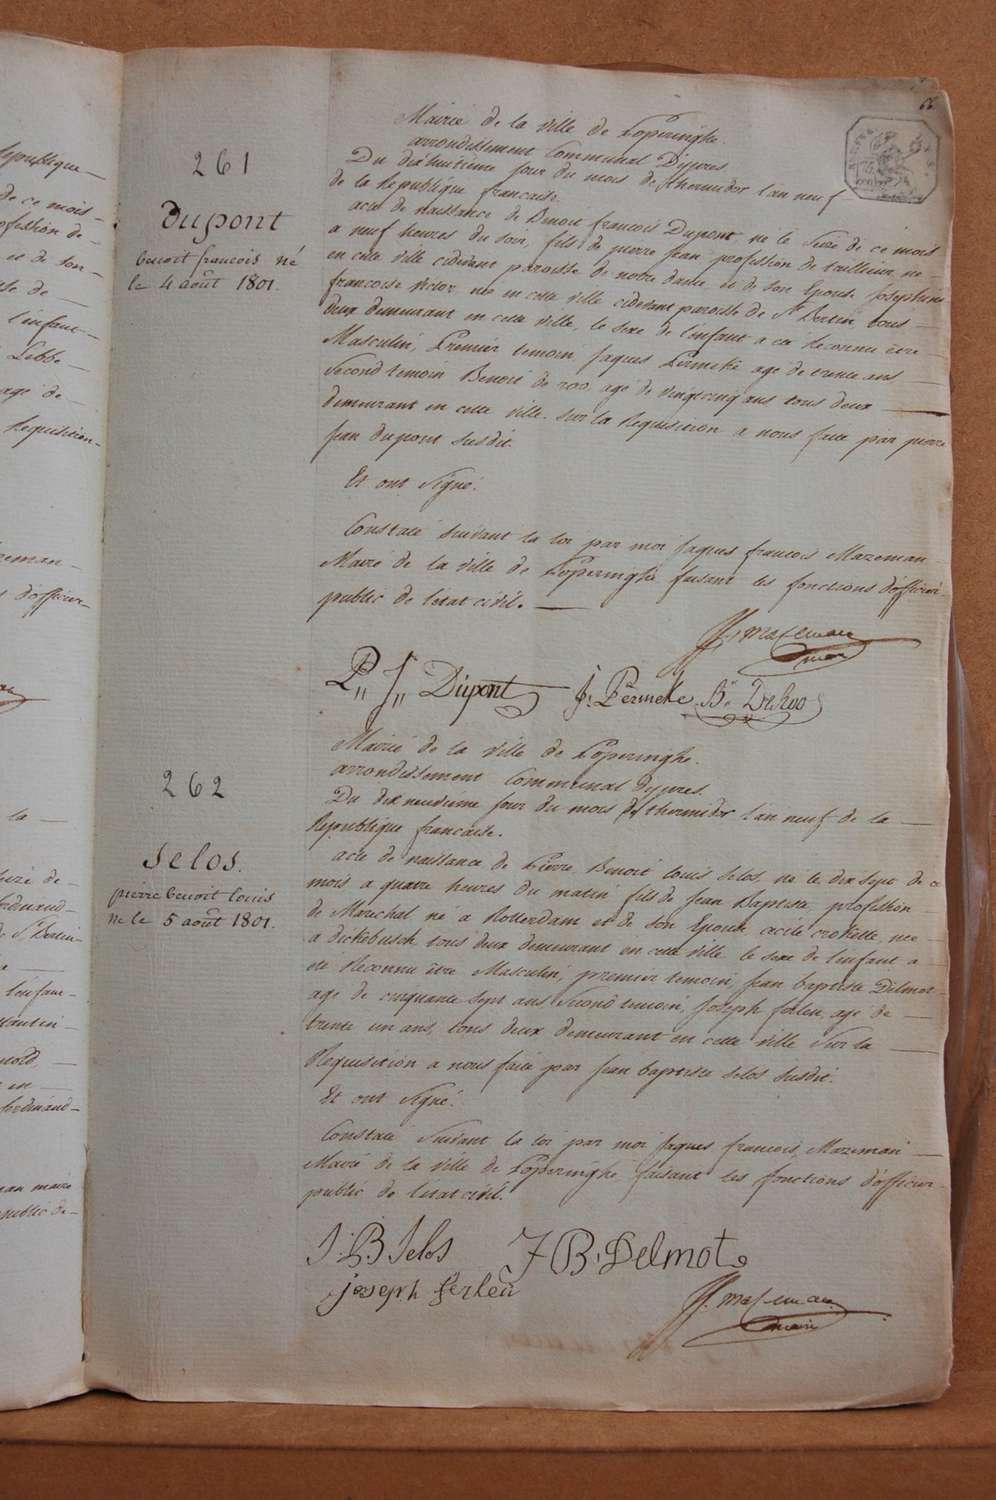 66
Mairie de la ville de Poperinghe.
arrondissement Communal Dÿpres
261
Du dixhuitieme jour du mois de thermidor l'an neuf
de la Republique francaise.
Dupont
benoit francois né
le 4 août 1801.
acte de naissance de Benoit francois Dupont, né le Seize de ce mois
a neuf heures du soir, fils de pierre jean profession de tailleur, né
en cette ville cidevant paroisse de notre dame et de son Epouse Josephine
francoise victor née en cette ville cidevant paroisse de St Bertin tous
deux demeurant en cette ville, le sexe de l'enfant a été Reconnu être
Masculin, Premier temoin Jaques Permeke agé de trente ans
Second temoin Benoit de roo agé de vingtcinq ans tous deux
demeurant en cette ville. sur la Requisition a nous faite par pierre
jean dupont susdit.
Et ont Signé.
Constaté suivant la loi par moi Jaques francois Mazeman
Maire de la ville de Poperinghe faisant les fonctions d'officier
public de l'etat civil.
J f Mazeman
maire
P,, J,, Dupont J: Permeke B: DeRoo
Mairie de la ville de Poperinghe.
arrondissement Communal Dÿpres.
262
Du dix neuvieme jour du mois de thermidor l'an neuf de la
Republique francaise.
Selos.
pierre benoit louis
né le 5 août 1801.
acte de naissance de Pierre Benoit louis selos, né le dix sept de ce
mois a quatre heures du matin fils de Jean Baptiste profession
de Marechal né a Rotterdam et de son Epouse cecile crokelle, née
a dickebusch tous deux demeurant en cette ville le sexe de l'enfant a
eté Reconnu être Masculin, premier temoin, Jean baptiste Delmot
agé de cinquante sept ans, second temoin, Joseph ferleu, agé de
trente un ans, tous deux demeurant en cette ville Sur la
Requisition a nous faite par Jean baptiste selos susdit.
Et ont Signé.
Constaté Suivant la loi par moi Jaques francois Mazeman
Maire de la ville de Poperinghe faisant les fonctions d'officier
public de l'etat civil.
J:B Selos J B: Delmot
joseph ferleu
J f. Mazeman
maire